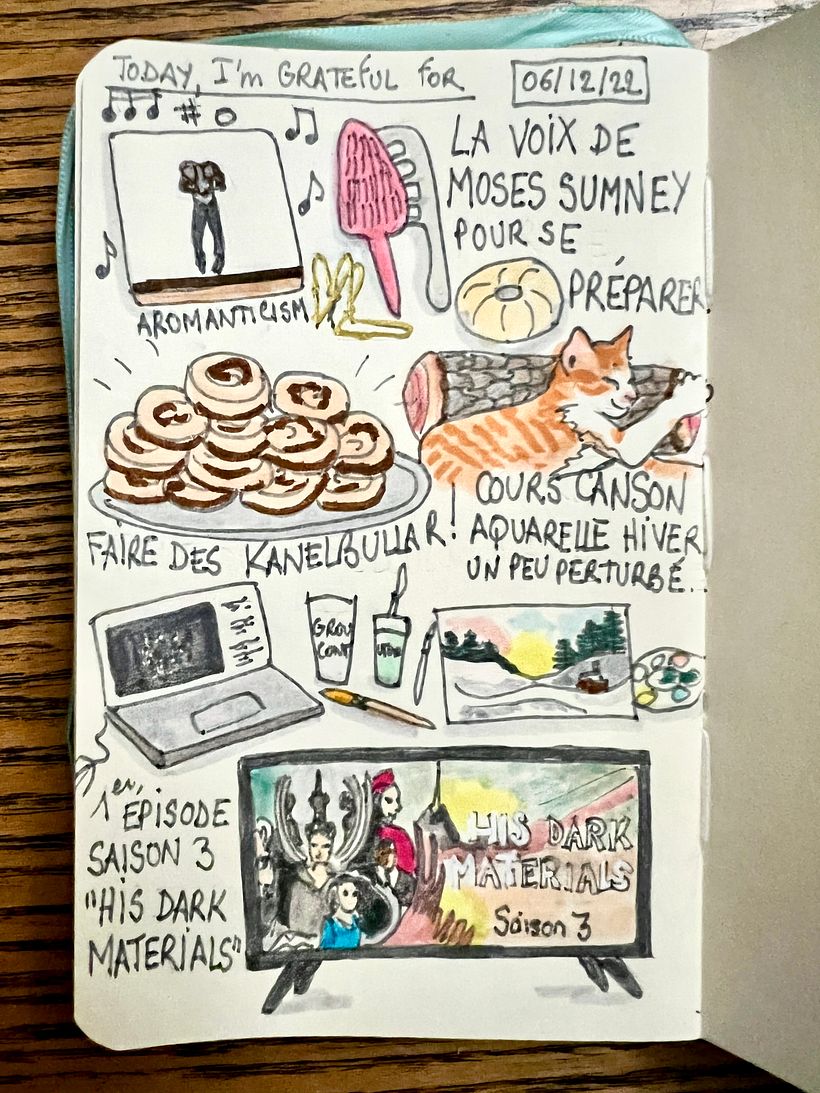 TODAY, I'm GRATEFUL FOR
06/12/22
LA VOIX DE
MOSES SUMNEY
POUR SE
PRÉPARER
AROMANTICISM
FAIRE DES KANELBULLAR!
COURS CANSON
AQUARELLE HIVER
UN PEU PERTURBÉ...
1er, EPISODE
SAISON 3
"HIS DARK
MATERIALS"
HIS DARK
MATERIALS
Saison 3